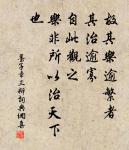 故其樂逾繁者
其治逾寡
自此觀之
樂非所以治天下
也
墨子章三辯詞典網集